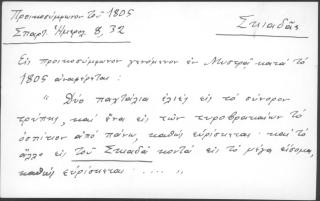 Προικοσύμφωνον τοῦ 1805
Σπαρτ. Ἡμερολ. 8, 32
Σκιαδᾶς
Εἰς προικοσύμφωνον γενόμενον ἐν Μυστρᾷ κατὰ τὸ
1805 ἀναφέρεται:
"Δύο παγτάλια ἐλιὲς εἰς τὸ σύνορον
τρύπης, καὶ ἕνα εἰς τῶν τυροβρακαίων τὸ
ὁσπίτιον ἀπὸ πάνω, καθὼς εὑρίσκεται· καὶ τὸ
ἄλλο εἰς τοῦ Σκιαδᾶ κοντὰ εἰς τὸ μέγα εἴσομα,
καθὼς εὑρίσκεται . . . . . "